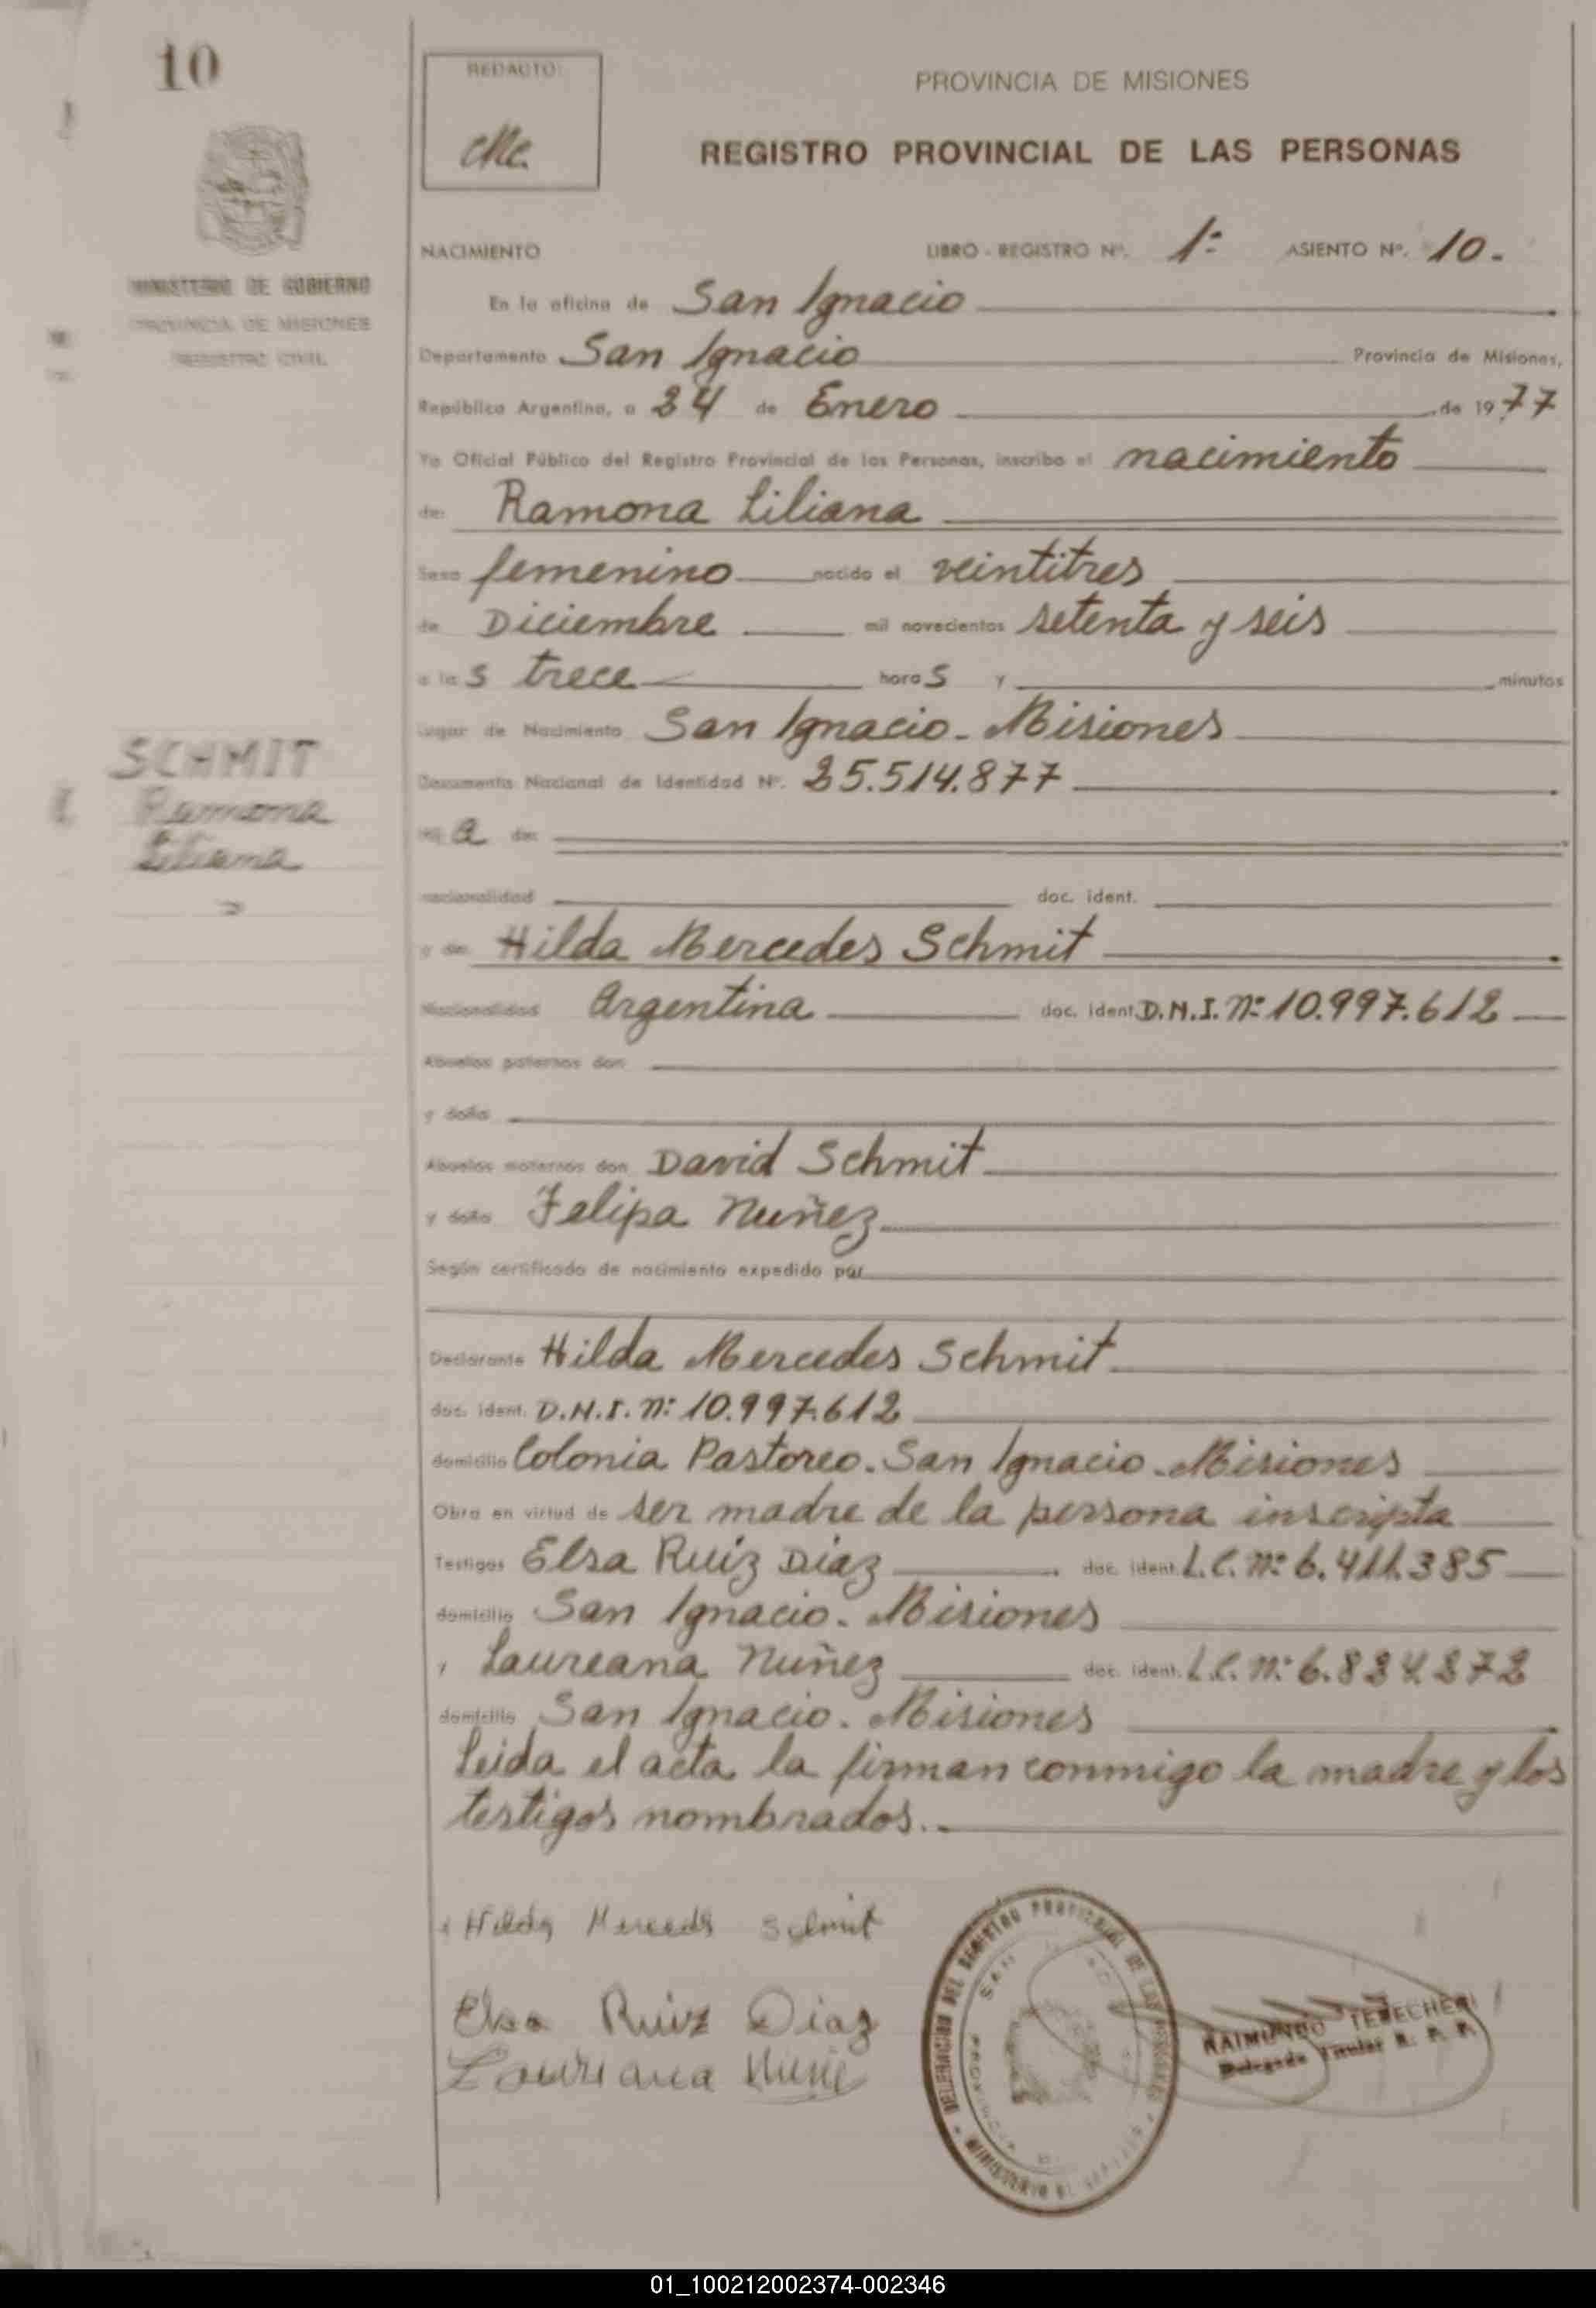 10
REDACTO:
PROVINCIA DE MISIONES
REGISTRO PROVINCIAL DE LAS PERSONAS
MINISTERIO DE GOBIERNO
PROVINCIA DE MISIONES
REGISTRO CIVIL
NACIMIENTO LIBRO - REGISTRO Nº. 1º ASIENTO Nº. 10.-
En la oficina de San Ignacio
Departamento San Ignacio Provincia de Misiones,
República Argentina, a 24 de Enero de 1977
Yo Oficial Público del Registro Provincial de las Personas, inscribo el nacimiento
de: Ramona Liliana
Sexo femenino nacido el veintitres
de Diciembre mil novecientos setenta y seis
a las trece horas y minutos
Lugar de Nacimiento San Ignacio - Misiones
Documento Nacional de Identidad Nº. 25.514.877
SCHMIT
Ramona
Liliana
Hija de:
nacionalidad doc. ident.
y de: Hilda Mercedes Schmit
Nacionalidad Argentina doc. ident. D.N.I. Nº 10.997.612
Abuelos paternos don
y doña
Abuelos maternos don David Schmit
y doña Felipa Nuñez
Según certificado de nacimiento expedido por
Declarante Hilda Mercedes Schmit
doc. ident. D.N.I. Nº 10.997.612
domicilio Colonia Pastoreo - San Ignacio - Misiones
Obra en virtud de ser madre de la persona inscripta
Testigos Elsa Ruiz Diaz doc. ident. L.C. Nº 6.411.385
domicilio San Ignacio - Misiones
y Laureana Nuñez doc. ident. L.C. Nº
domicilio San Ignacio - Misiones
Leida el acta la firman conmigo la madre y los
testigos nombrados.-
Hilda Mercedes Schmit
Elsa Ruiz Diaz
DELEGACION DEL REGISTRO PROVINCIAL DE LAS PERSONAS
MINISTERIO DE
SAN
RAIMUNDO
Delegado Titular R. P. P.
01_100212002374-002346